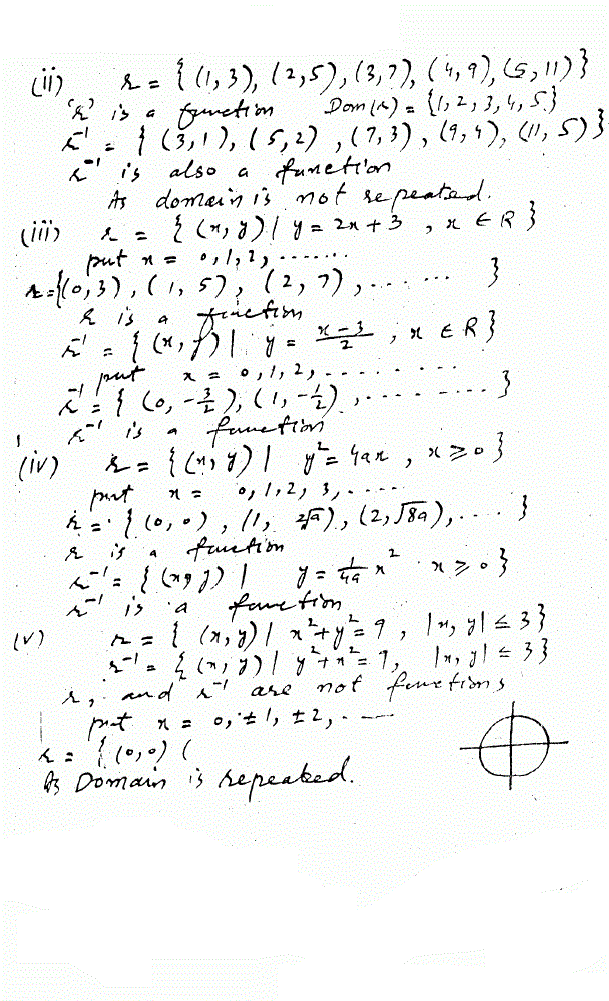 (ii) r = { (1,3), (2,5), (3,7), (4,9), (5,11) }
'r' is a function Dom(r) = {1,2,3,4,5}
r⁻¹ = { (3,1), (5,2), (7,3), (9,4), (11,5) }
r⁻¹ is also a function
As domain is not repeated.
(iii) r = { (x,y) | y = 2x + 3 , x ∈ R }
put x = 0,1,2, .......
r = {(0,3), (1,5), (2,7), ....... }
r is a function
r⁻¹ = { (x,y) | y = (x-3)/2 , x ∈ R }
put x = 0,1,2, .........
r⁻¹ = { (0, -3/2), (1, -1/2), ......... }
r⁻¹ is a function
(iv) r = { (x,y) | y² = 4ax , x ≥ 0 }
put x = 0,1,2,3, .....
r = { (0,0), (1, 2√a), (2, √8a), .... }
r is a function
r⁻¹ = { (x,y) | y = 1/4a x² x ≥ 0 }
r⁻¹ is a function
(v) r = { (x,y) | x² + y² = 9 , |x,y| ≤ 3 }
r⁻¹ = { (x,y) | y² + x² = 9, |x,y| ≤ 3 }
r, and r⁻¹ are not functions
put x = 0, ±1, ±2, .....
r = { (0,0) (
As Domain is repeated.